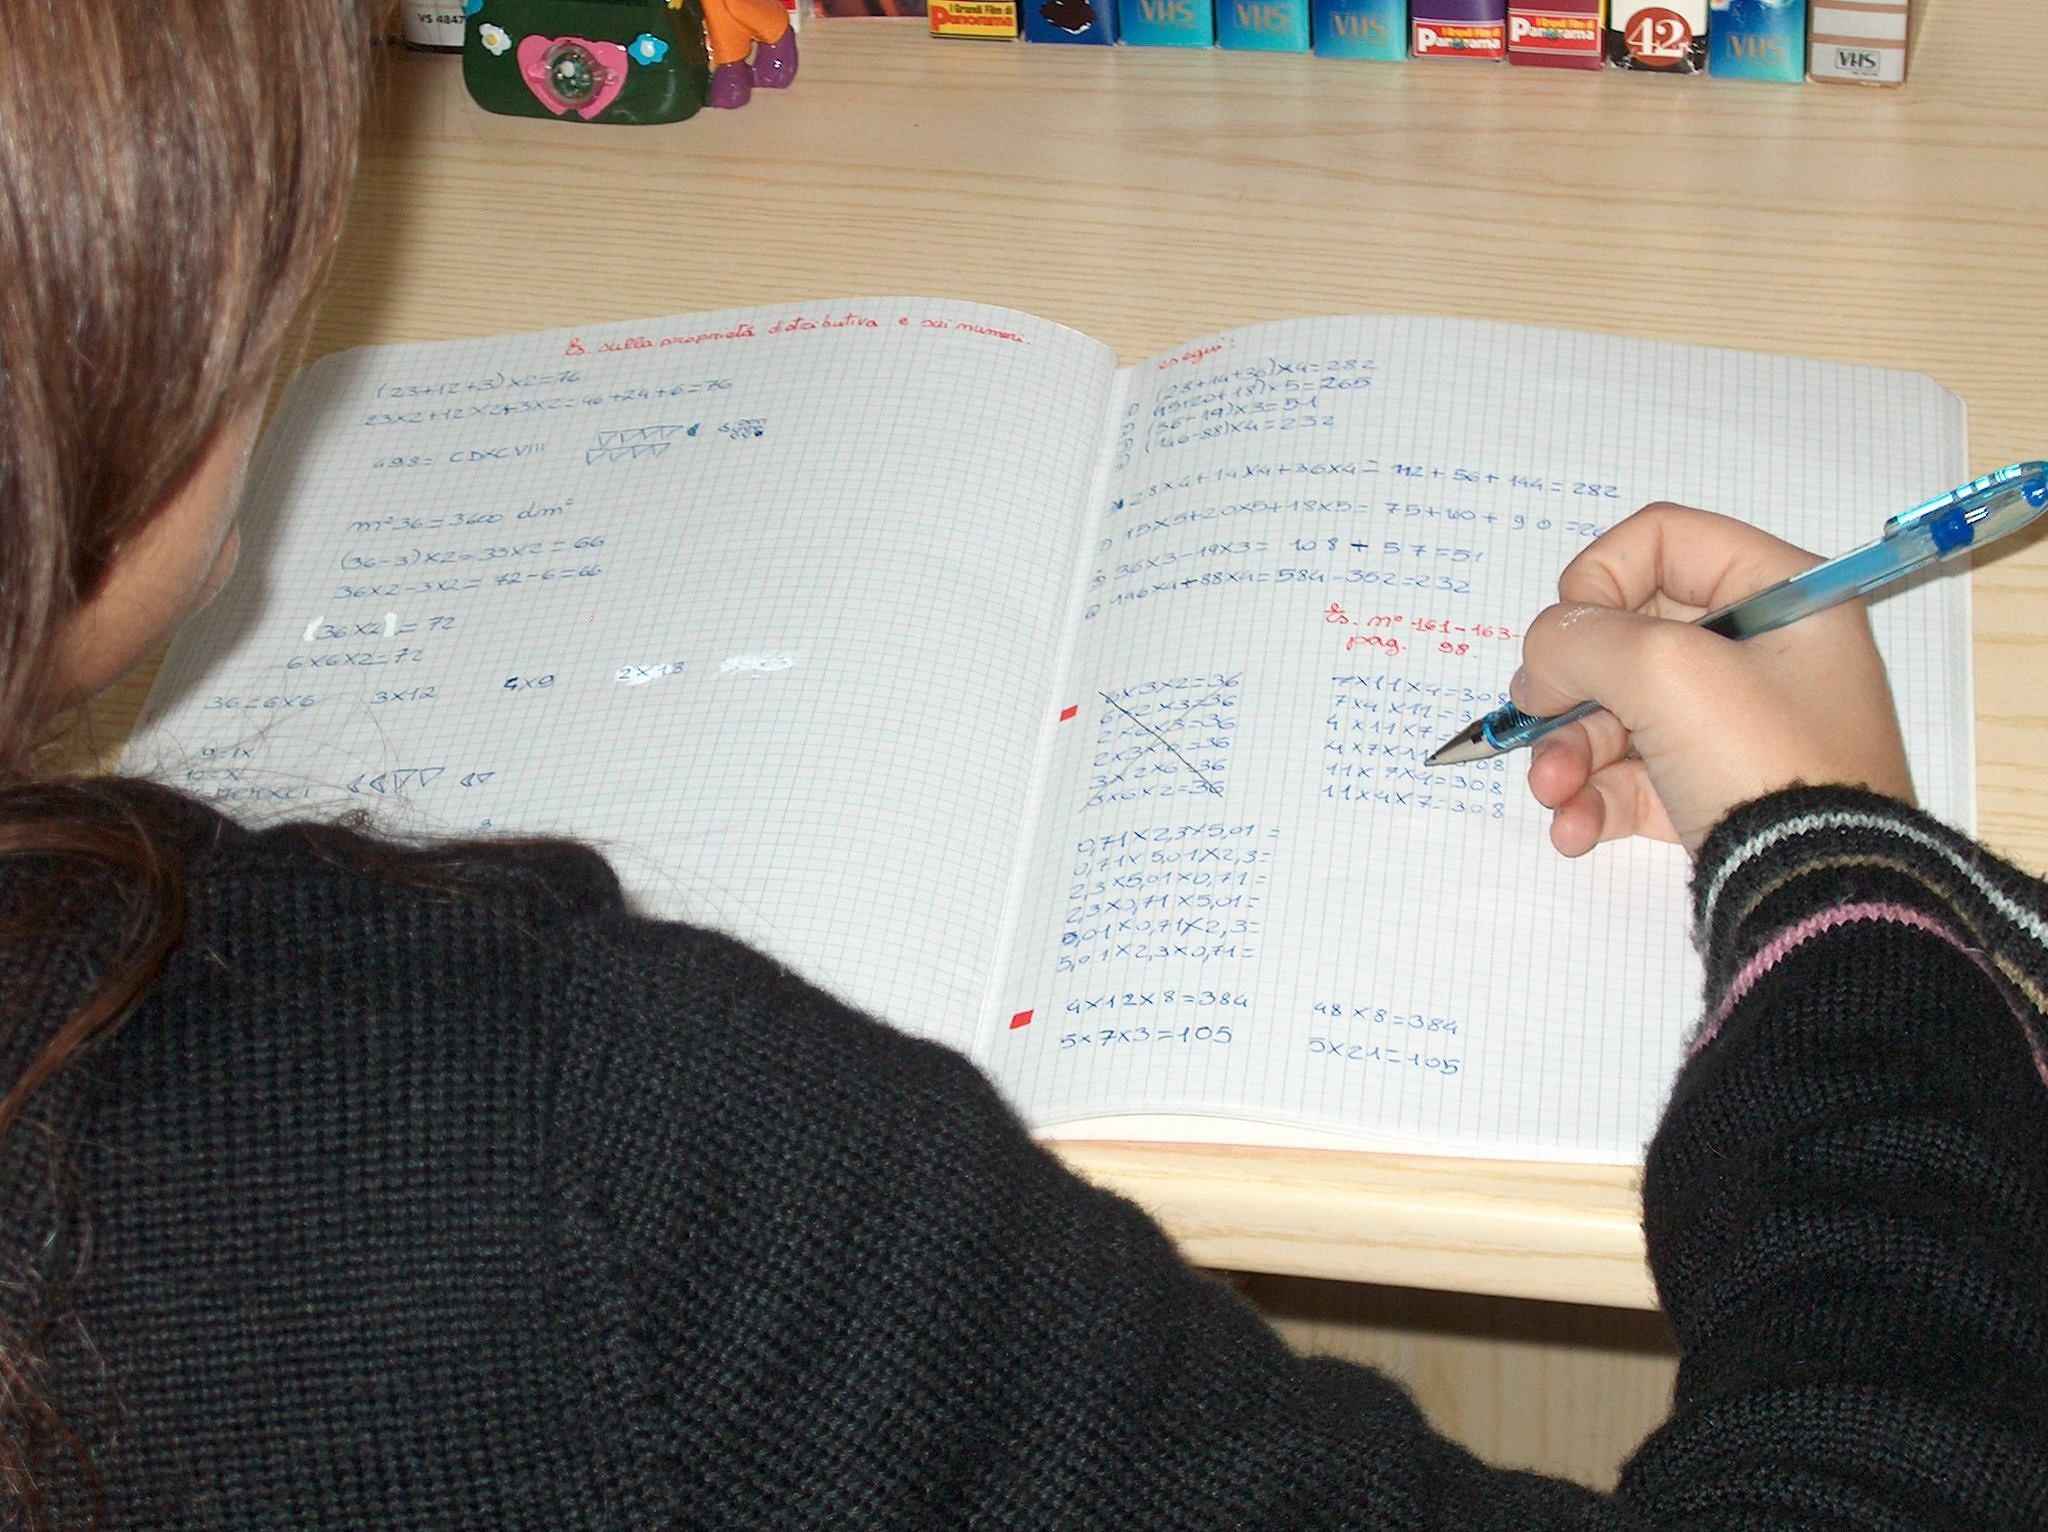 VS 4847
I Grandi Film di
Panorama
VHS
VHS
VHS
I Grandi Film di
Panorama
I Grandi Film di
Panorama
42
VHS
VHS
Es. sulla proprietá distributiva e sui numeri.
(23+12+3)×2=76
23×2+12×2+3×2=46+24+6=76
498= CDXCVIII
m² 36 = 3600 dm²
(36-3)×2=33×2=66
36×2-3×2= 72-6=66
(36×2)=72
6×6×2=72
36=6×6 3×12 4×9 2×18
9=IX
10=X
esegui:
(28+14+36)×4=282
(15+20+18)×5=265
(36-19)×3=51
(146-88)×4=232
28×4+14×4+36×4= 112+56+144=282
15×5+20×5+18×5= 75+100+90=
36×3-19×3= 108+57=51
146×4+88×4=584-352=232
Es. n° 161-163-
pag. 98.
6×3×2=36
6×2×3=36
2×6×3=36
2×3×6=36
3×2×6=36
3×6×2=36
7×11×4=308
7×4×11=3
4×11×7=
4×7×11 308
11×7×4=308
11×4×7=308
0,71×2,3×5,01=
0,71×5,01×2,3=
2,3×5,01×0,71=
2,3×0,71×5,01=
5,01×0,71×2,3=
5,01×2,3×0,71=
4×12×8=384 48×8=384
5×7×3=105 5×21=105